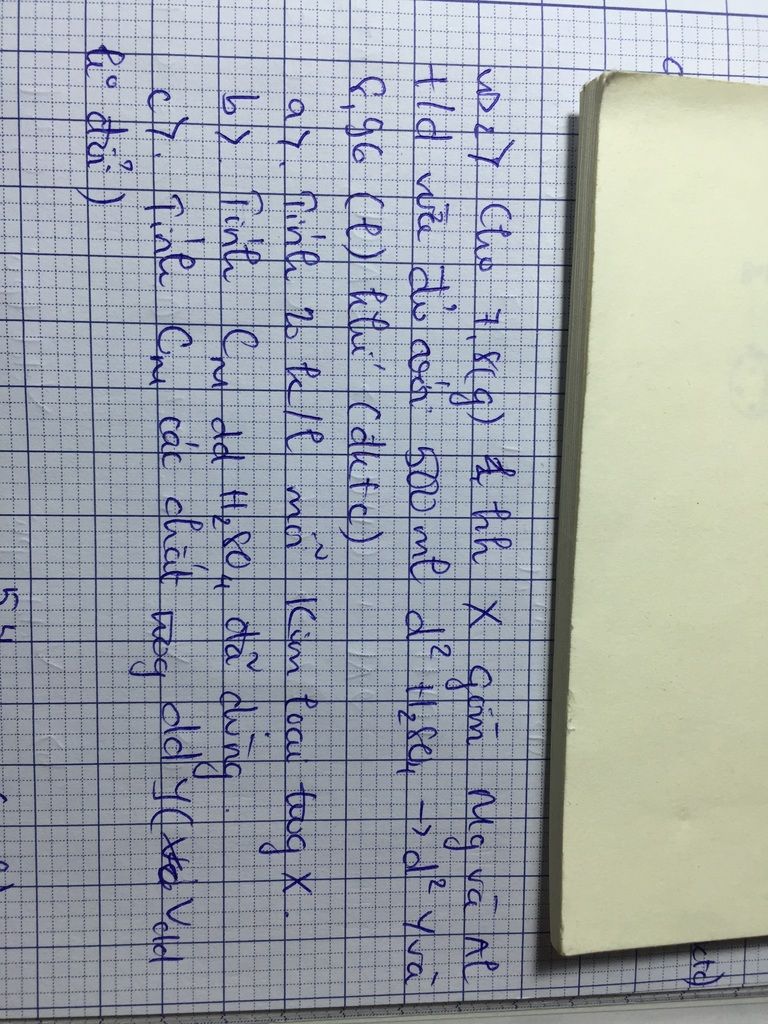 2) Cho 7,8(g) 1 hh X gồm Mg và Al
t/d vừa đủ với 500 ml d² H₂SO₄ → d² Y và
8,96 (l) khí (đktc)
a). Tính % k/l mỗi kim loại trog X.
b). Tính CM dd H₂SO₄ đã dùng.
c). Tính CM các chất trog dd Y ( Vdd
ko đổi)
54
ctd)